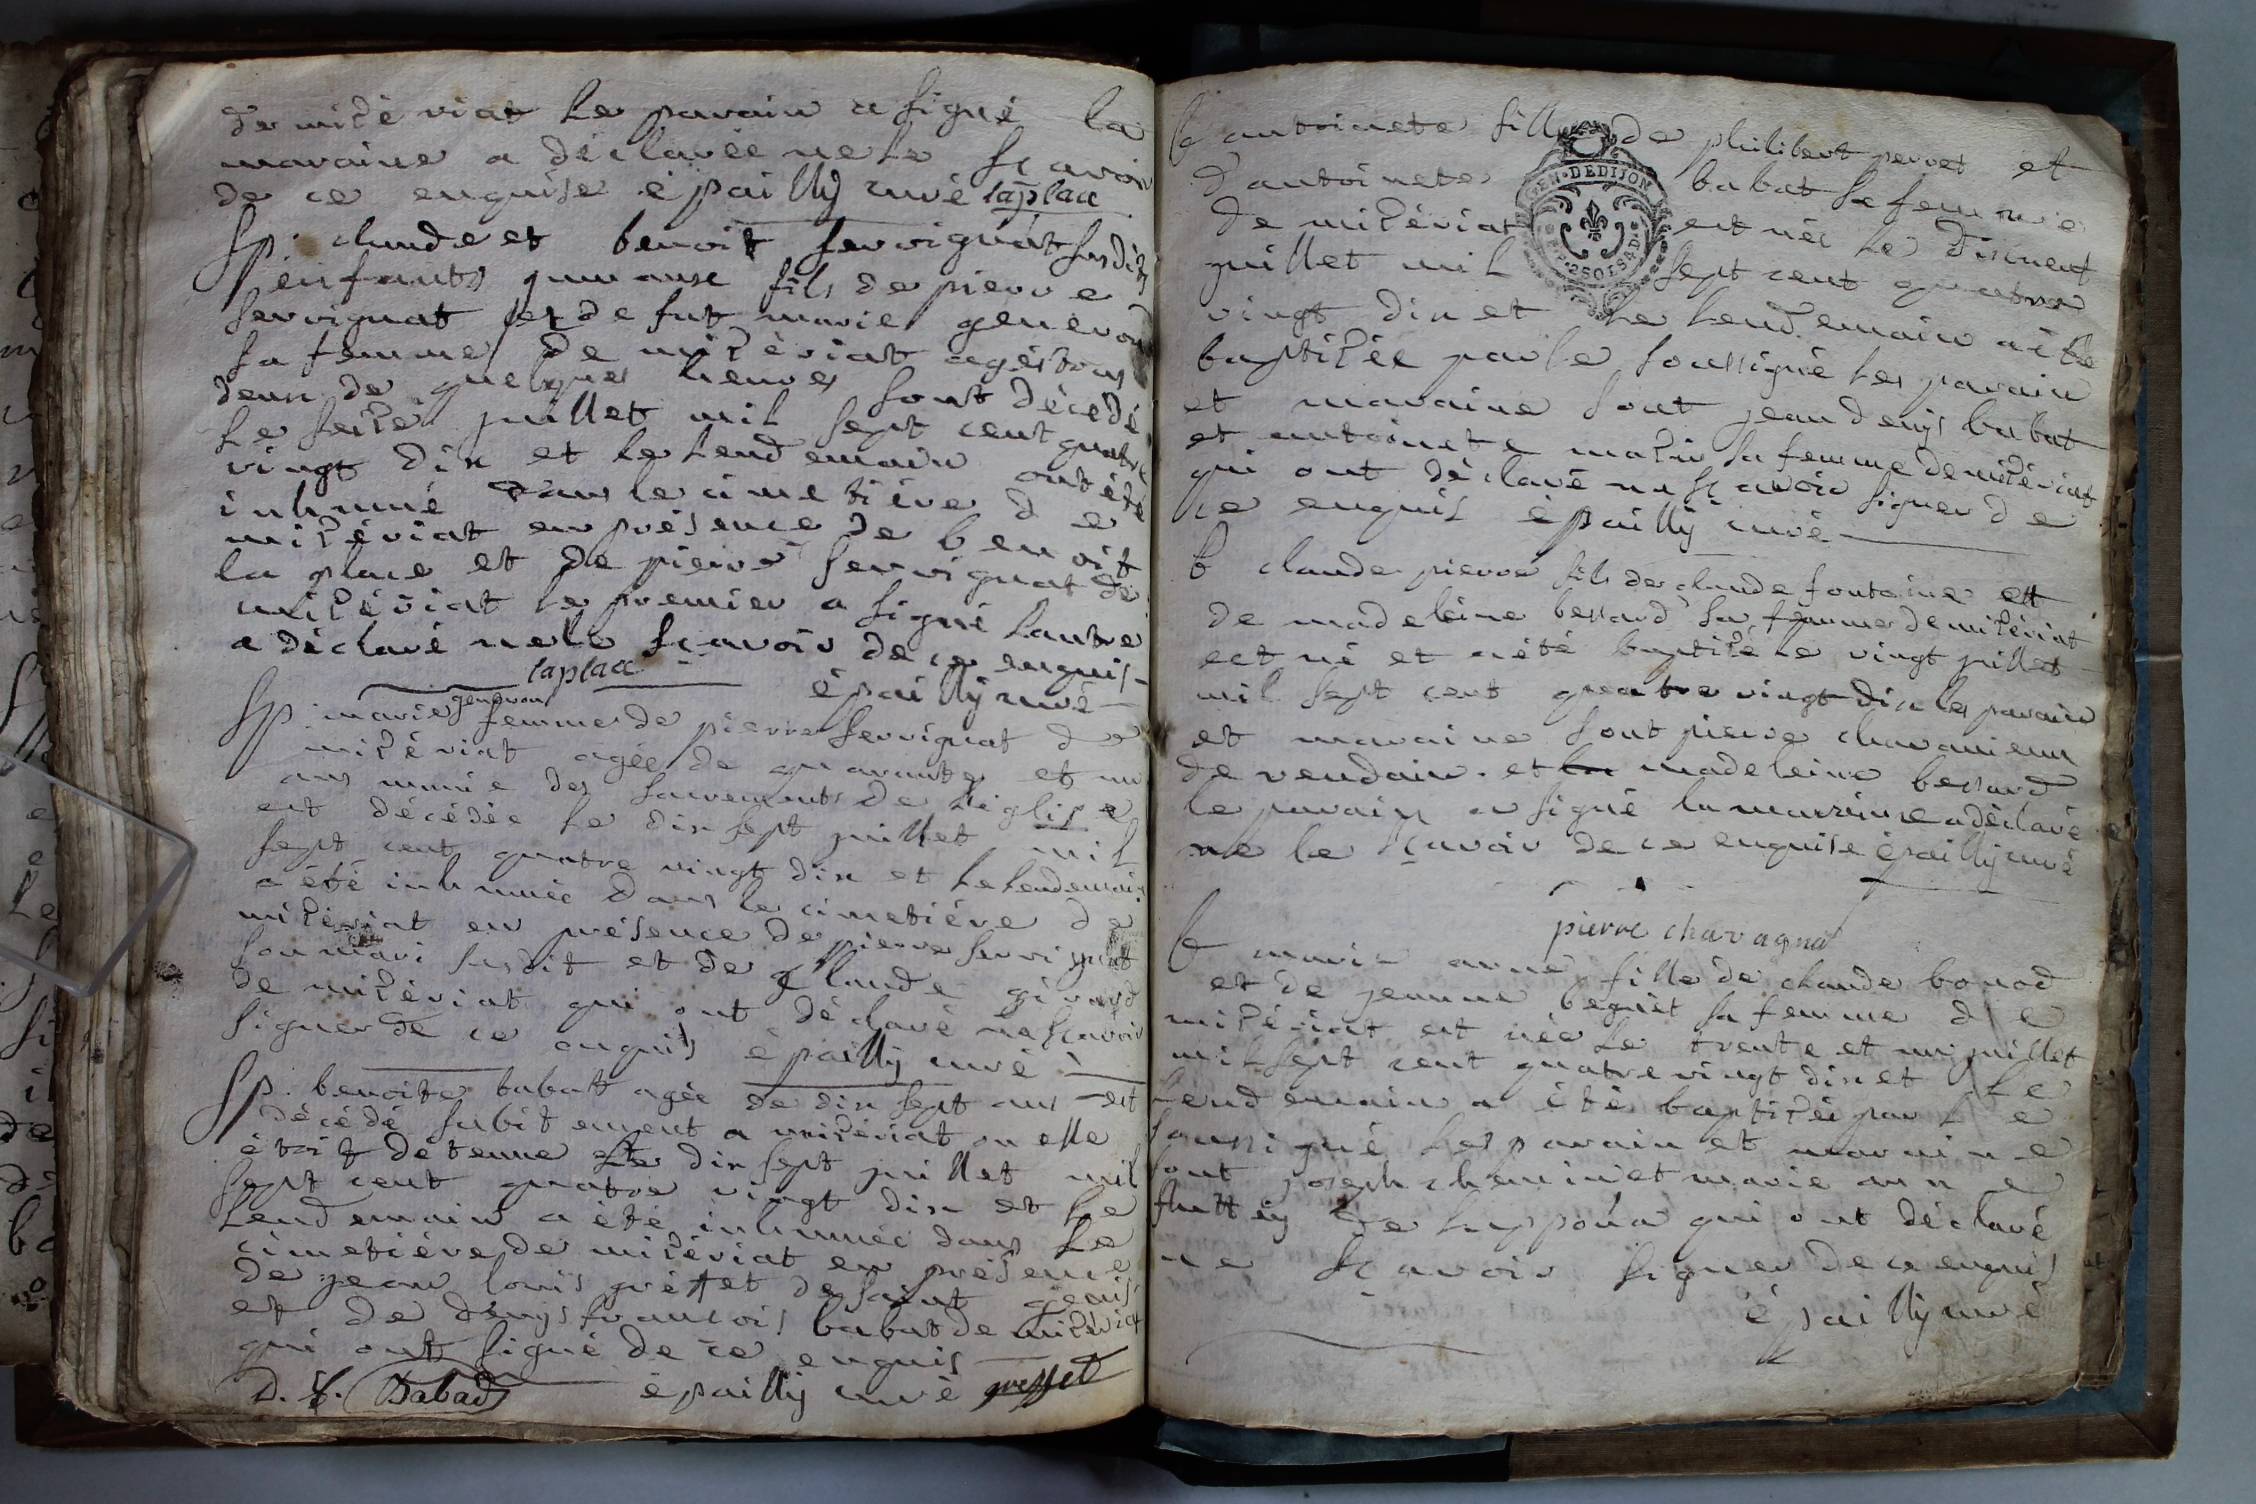 de mizériat le parain a signé la
maraine a déclarée ne le sçavoir
de ce enquise épailly curé laplace
Sp. claude et benoit servignat susdits
enfants jumaux fils de pierre
servignat et de fut marie genevon
sa femme de mizériat agés tous
deux de quelques heures sont décédé
le seize juillet mil sept cent quatre
vingt dix et le lendemain ont été
inhumé dans le cimetiére de
mizériat en présence de benoit
la place et de pierre servignat de
mizériat le premier a signé lautre
a déclaré ne le sçavoir de ce enquis
laplace épailly curé
Sp. marie genevon femme de pierre servignat de
mizériat agée de quarante et un
ans munie des sacrements de léglise
est décédée le dix sept juillet mil
sept cent quatre vingt dix et le lendemain
a été inhumée dans le cimetiére de
mizériat en présence de pierre servignat
son mari susdit et de claude girard
de mizériat qui ont déclaré ne sçavoir
signer de ce enquis épailly curé
Sp. benoite babat agée de dix sept ans est
décédé subitement a mizériat ou elle
étoit détenue le dix sept juillet mil
sept cent quatre vingt dix et le
lendemain a été inhumée dans le
cimetiére de mizériat en présence
de jean louis gréffet de saint genis
et de denys francois babat de mizériat
qui ont signé de ce enquis
D. f. Babad épailly curé greffet
b antoinete fille de philibert perret et
d'antoinete babat sa femme
de mizériat est née le dixneuf
GEN. DE DIJON
juillet mil sept cent quatre
vingt dix et le lendemain a été
baptizée par le soussigné les parain
et maraine sont jean denys babat
et antoinete sa femme de mizériat
qui ont déclaré ne sçavoir signer de
ce enquis épailly curé
b claude pierre fils de claude fontaine et
de madeleine bessard sa femme de mizériat
est né et a été baptizé le vingt juillet
mil sept cent quatre vingt dix les parain
et maraine sont pierre
de vendain. et madeleine bessard
le parain a signé la marraine a déclaré
ne le sçavoir de ce enquise épailly curé
pierre chavagna
b marie anne fille de claude bonod
et de jeanne beguet sa femme de
mizériat est née le trente et un juillet
mil sept cent quatre vingt dix et le
lendemain a été baptizée par le
soussigné les parain et maraine
sont joseph et marie anne
de qui ont déclaré
ne sçavoir signer de ce enquis
épailly curé